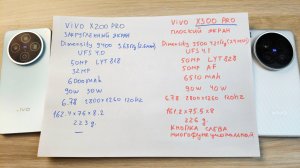 VIVO X200 PRO
ЗАКРУГЛЕННЫЙ ЭКРАН
Dimensity 9400 3.63ГГц (3нм)
UFS 4.0
50МР LYT 818
32МР
6000 mah
90W 30W
6.78 2800×1260 120hz
162.4×76×8.2
223 g.
—
VIVO X300 PRO
ПЛОСКИЙ ЭКРАН
Dimensity 9500
UFS 4.1
50МР LYT 828
50МР AF
6510 mah
90W 40W
6.78 2800×1260 120hz
161.2×75.5×8
226 g.
КНОПКА СЛЕВА
МНОГОФУНКЦИОНАЛЬНАЯ
vivo